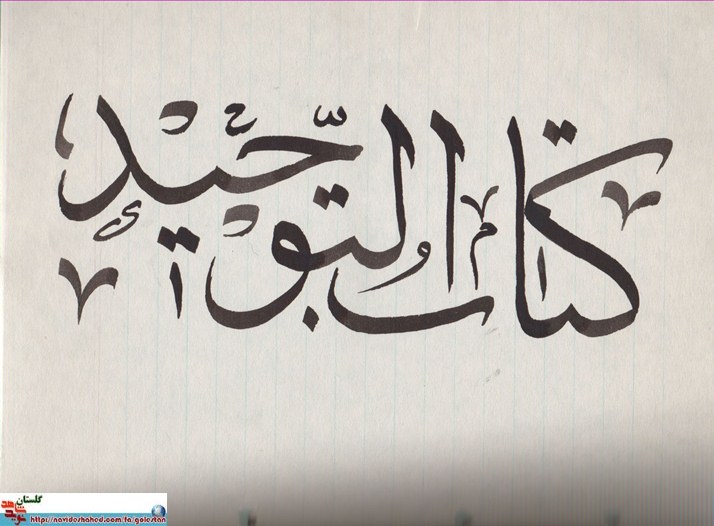 كتاب التوحيد
گلستان
نوید شاهد
https://navideshahed.com/fa/golestan